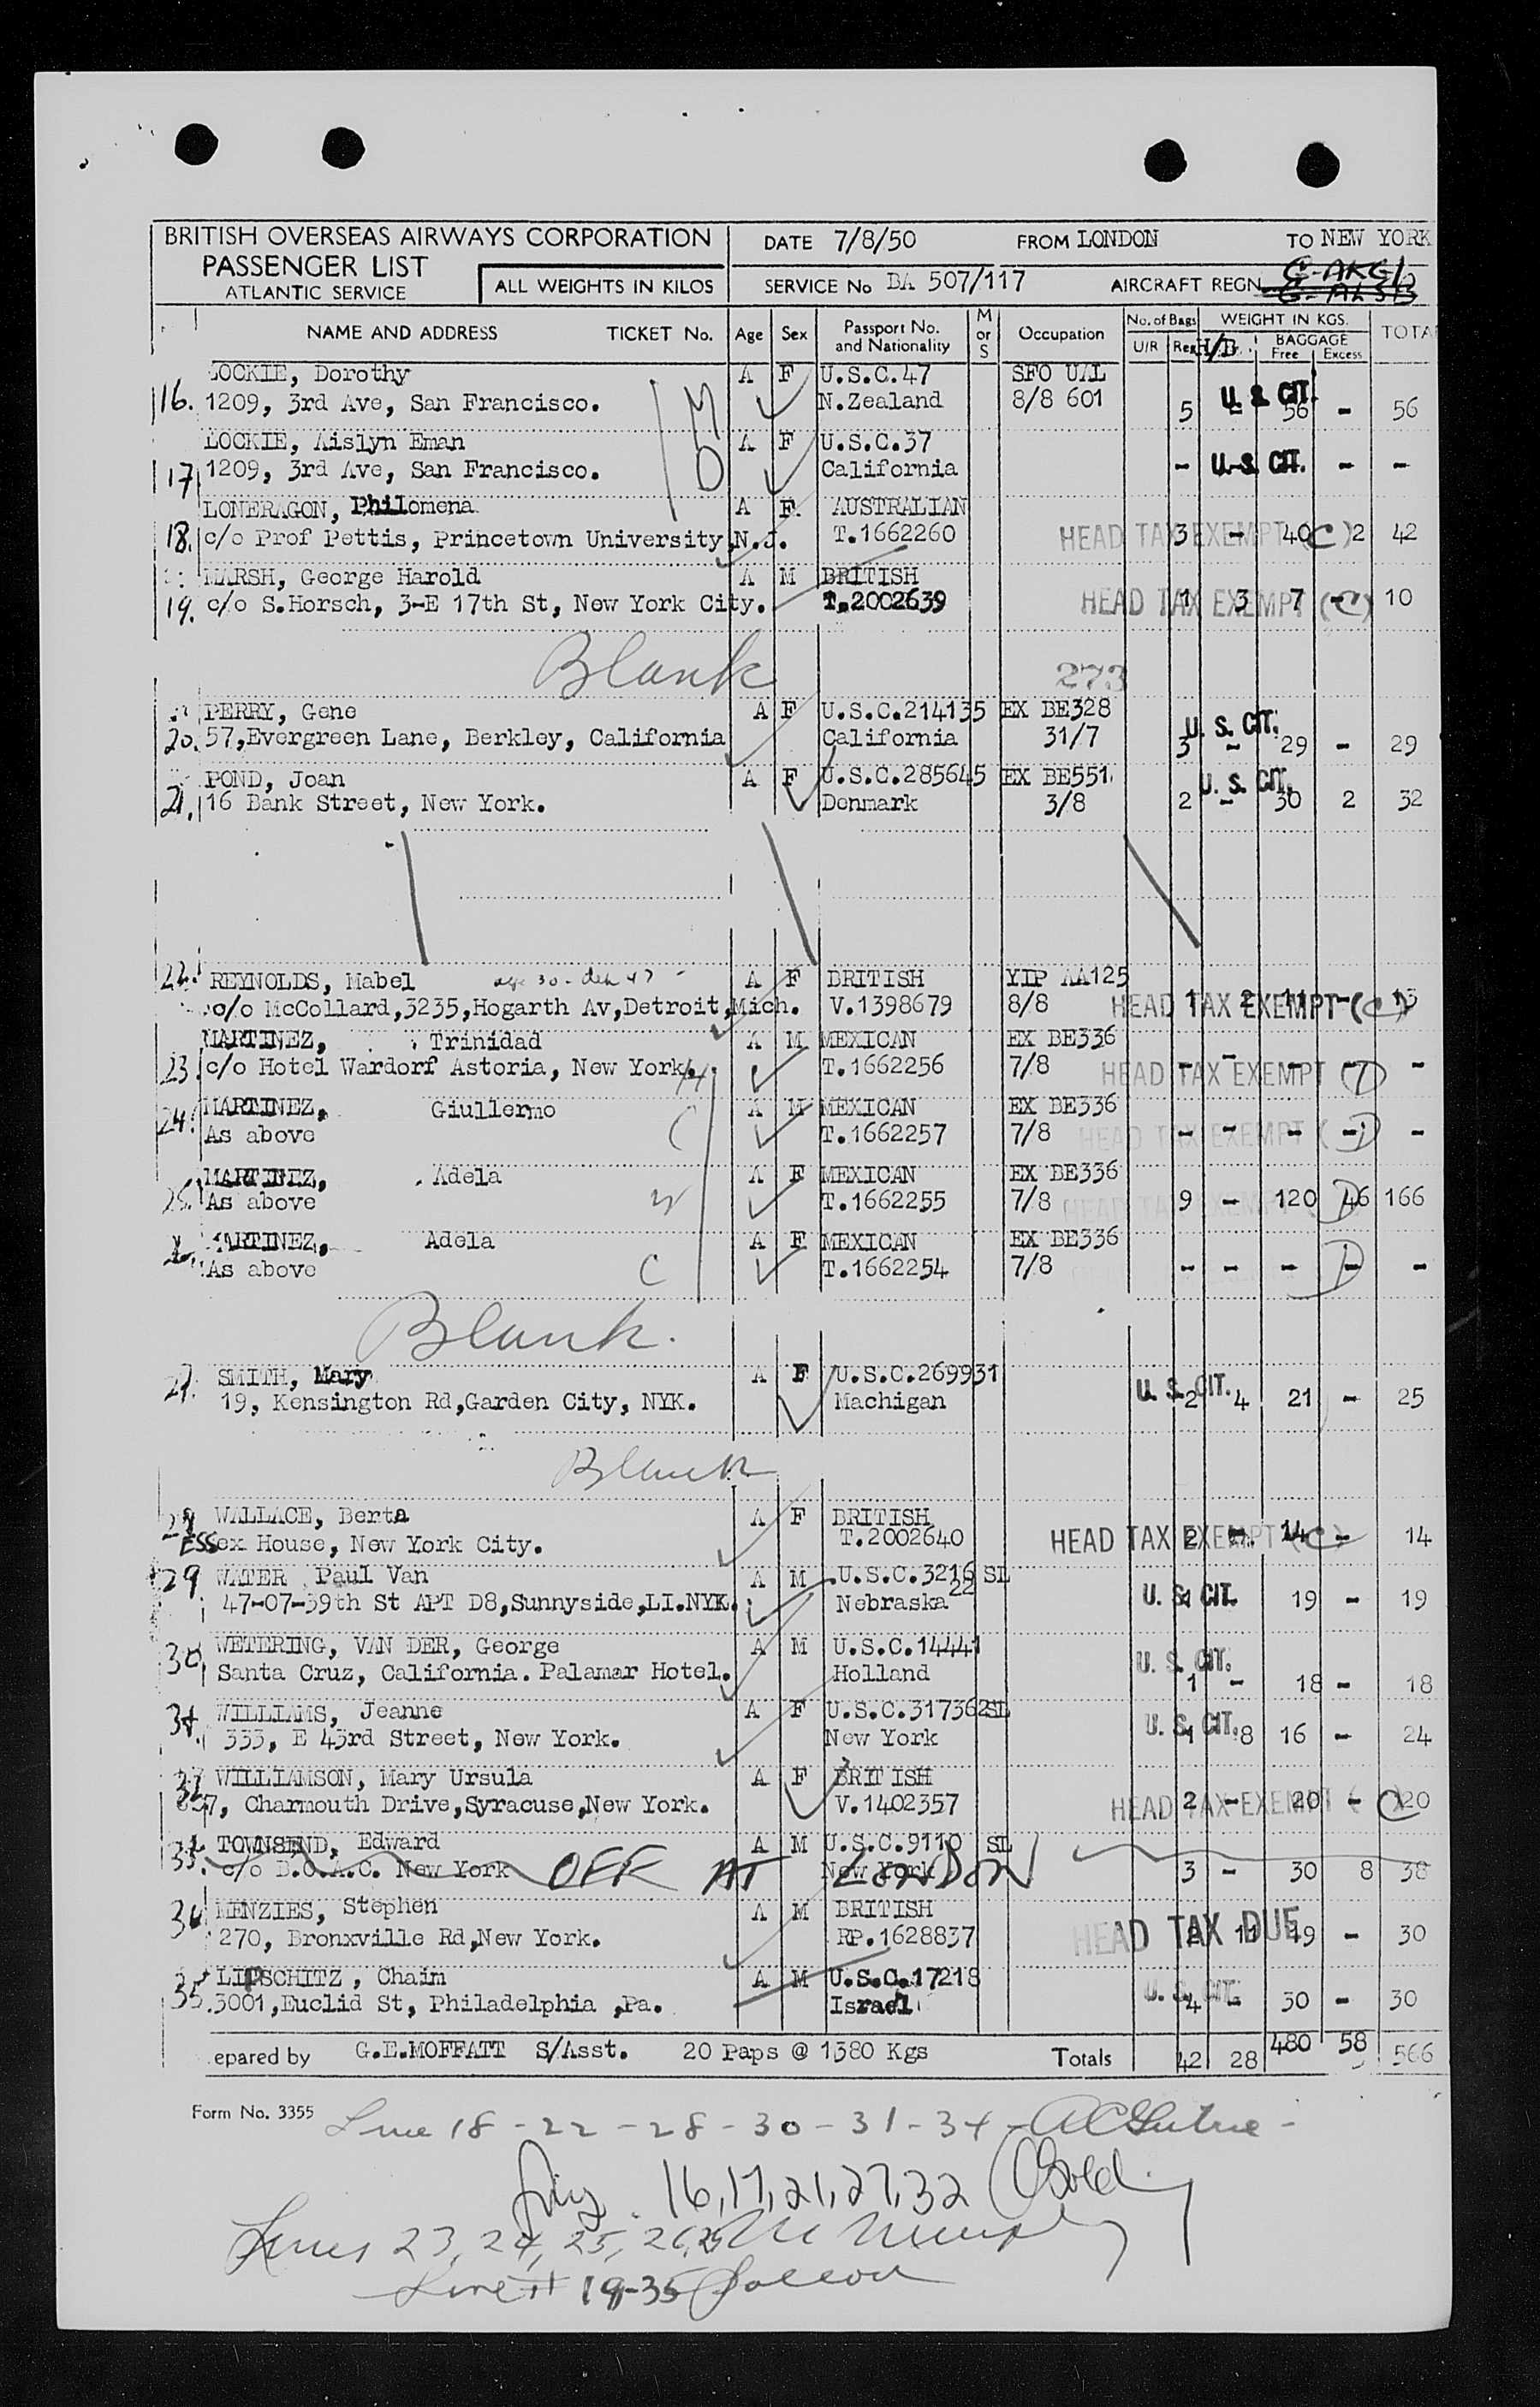 BRITISH OVERSEAS AIRWAYS CORPORATION
PASSENGER LIST
ATLANTIC SERVICE
ALL WEIGHTS IN KILOS
DATE 7/8/50 FROM LONDON TO NEW YORK
SERVICE No BA 507/117 AIRCRAFT REGN
NAME AND ADDRESS TICKET No. Age Sex Passport No. and Nationality M or S Occupation No. of Bags U/R Reg H/B WEIGHT IN KGS. BAGGAGE Free Excess TOTA
LOCKIE, Dorothy A F U.S.C.47 SFO UAL
16. 1209, 3rd Ave, San Francisco. N.Zealand 8/8 601 5 - U.S. CIT. 56 - 56
LOCKIE, Aislyn Eman A F U.S.C.37
17 1209, 3rd Ave, San Francisco. California - U.S. CIT. - -
LONERAGON, Philomena A F. AUSTRALIAN
18. c/o Prof Pettis, Princetown University, N.J. T.1662260 HEAD TAX EXEMPT (C) 3 - 40 2 42
MARSH, George Harold A M BRITISH
19. c/o S.Horsch, 3-E 17th St, New York City. T.2002639 HEAD TAX EXEMPT (C) 1 3 7 - 10
Blank 273
PERRY, Gene A F U.S.C.214135 EX BE328
20. 57,Evergreen Lane, Berkley, California California 31/7 U. S. CIT. 3 - 29 - 29
POND, Joan A F U.S.C.285645 EX BE551
21. 16 Bank Street, New York. Denmark 3/8 U. S. CIT. 2 - 30 2 32
22. REYNOLDS, Mabel A F BRITISH YIP AA125
c/o McCollard,3235,Hogarth Av,Detroit,Mich. V.1398679 8/8 HEAD TAX EXEMPT (C) 1 2 11 - 13
MARTINEZ, Trinidad A M MEXICAN EX BE336
23. c/o Hotel Wardorf Astoria, New York. H T.1662256 7/8 HEAD TAX EXEMPT - - - - -
24. MARTINEZ, Giullermo A M MEXICAN EX BE336
As above C T.1662257 7/8 HEAD TAX EXEMPT - - - - -
MARTINEZ, Adela A F MEXICAN EX BE336
25. As above W T.1662255 7/8 9 - 120 46 166
MARTINEZ, Adela A F MEXICAN EX BE336
As above C T.1662254 7/8 - - - - -
Blank.
SMITH, Mary A F U.S.C.269931
27. 19, Kensington Rd,Garden City, NYK. Machigan U. S. CIT. 2 4 21 - 25
Blank
WALLACE, Berta A F BRITISH
ESSex House, New York City. T.2002640 HEAD TAX EXEMPT (C) 2 - 14 - 14
29 WATER Paul Van A M U.S.C.3216 SL
47-07-39th St APT D8,Sunnyside,LI.NYK. Nebraska 22 U. S. CIT. 1 19 - 19
WETERING, VAN DER, George A M U.S.C.14441
30 Santa Cruz, California. Palamar Hotel. Holland U. S. CIT. 1 - 18 - 18
WILLIAMS, Jeanne A F U.S.C.317362 SL
333, E 43rd Street, New York. New York U. S. CIT. 1 8 16 - 24
WILLIAMSON, Mary Ursula A F BRITISH
Charmouth Drive,Syracuse,New York. V.1402357 HEAD TAX EXEMPT (C) 2 - 20 - 20
TOWNSEND, Edward A M U.S.C.9110 SL
33. c/o B.O.A.C. New York OFF AT LONDON New York 3 - 30 8 38
34 MENZIES, Stephen A M BRITISH
270, Bronxville Rd,New York. RP.1628837 HEAD TAX DUE 2 11 19 - 30
LIPSCHITZ, Chaim A M U.S.C.17218
35. 3001,Euclid St, Philadelphia ,Pa. Israel U. S. CIT. 4 - 30 - 30
epared by G.E.MOFFATT S/Asst. 20 Paps @ 1380 Kgs Totals 42 28 480 58 566
Form No. 3355
Line 18 - 22 - 28 - 30 - 31 - 34 -
16, 17, 21, 27, 32
Lines 23, 24, 25, 26,
Line # 19-35